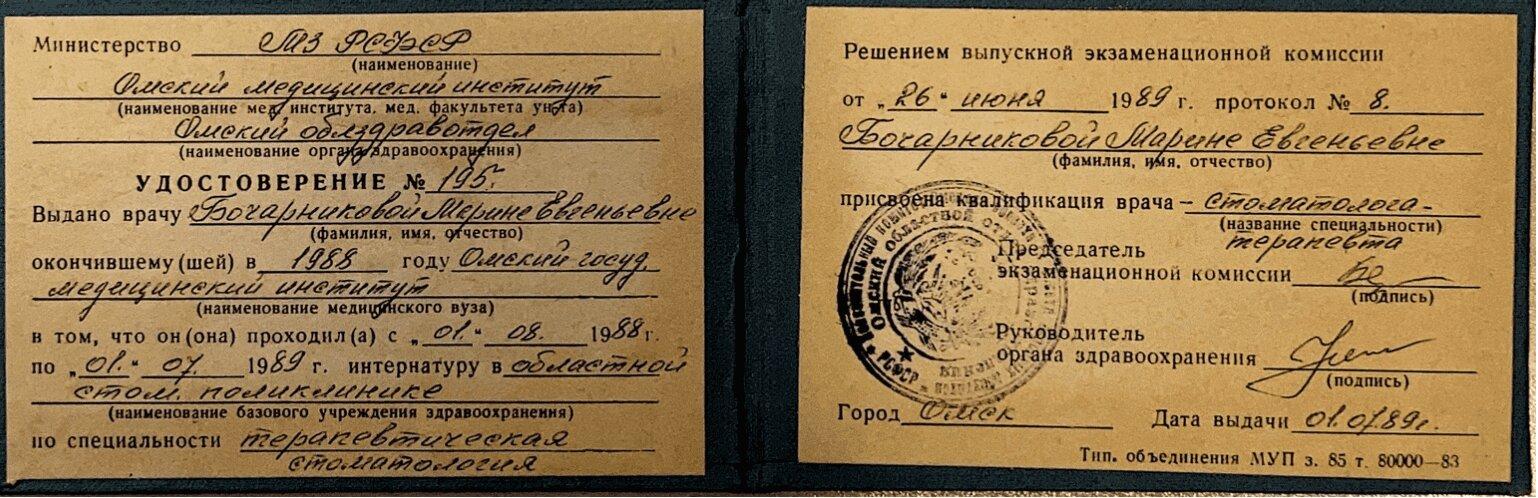 Министерство МЗ РСФСР
(наименование)
Омский медицинский институт
(наименование мед. института, мед. факультета ун-та)
Омский облздравотдел
(наименование органа здравоохранения)
УДОСТОВЕРЕНИЕ № 195.
Выдано врачу Бочарниковой Марине Евгеньевне
(фамилия, имя, отчество)
окончившему (шей) в 1988 году Омский госуд.
медицинский институт
(наименование медицинского вуза)
в том, что он (она) проходил (а) с „01." 08. 1988 г.
по „01." 07. 1989 г. интернатуру в областной
стом. поликлинике
(наименование базового учреждения здравоохранения)
по специальности терапевтическая
стоматология
Решением выпускной экзаменационной комиссии
от „26" июня 1989 г. протокол № 8.
Бочарниковой Марине Евгеньевне
(фамилия, имя, отчество)
присвоена квалификация врача — стоматолога-
(название специальности)
терапевта
Председатель
экзаменационной комиссии
(подпись)
Руководитель
органа здравоохранения
(подпись)
Город Омск Дата выдачи 01.07.89г.
Тип. объединения МУП з. 85 т. 80000—83
Омский областной
РСФСР